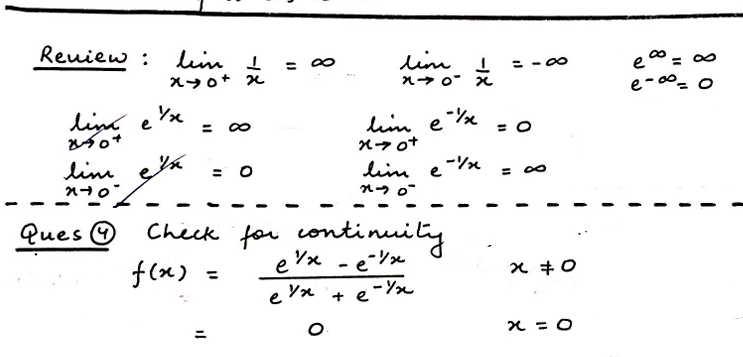 Review : lim x→0⁺ 1/x = ∞ lim x→0⁻ 1/x = -∞ e^∞ = ∞
e^-∞ = 0
lim x→0⁺ e^1/x = ∞ lim x→0⁺ e^-1/x = 0
lim x→0⁻ e^1/x = 0 lim x→0⁻ e^-1/x = ∞
Ques ④ Check for continuity
f(x) = (e^1/x - e^-1/x)/(e^1/x + e^-1/x) x ≠ 0
= 0 x = 0